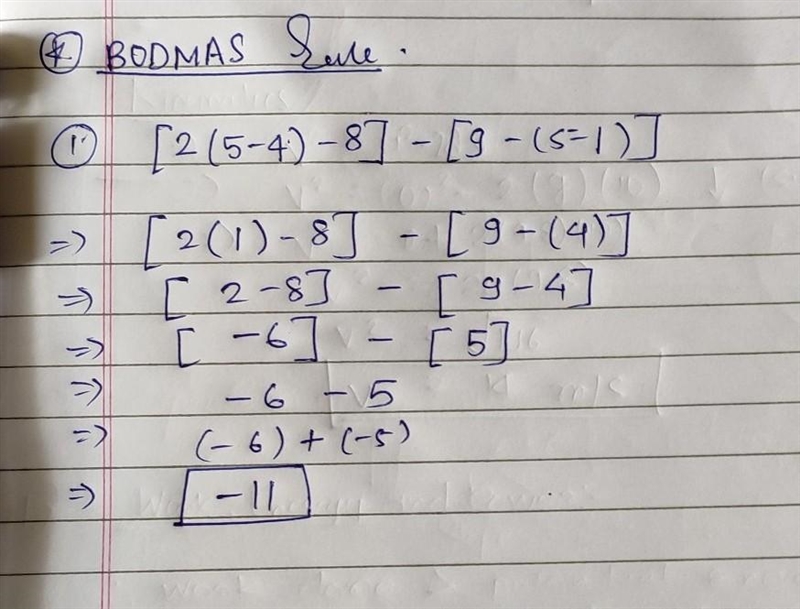 * BODMAS Rule.
1. [2(5-4)-8] - [9-(5-1)]
=> [2(1)-8] - [9-(4)]
=> [2-8] - [9-4]
=> [-6] - [5]
=> -6 -5
=> (-6)+(-5)
=> -11